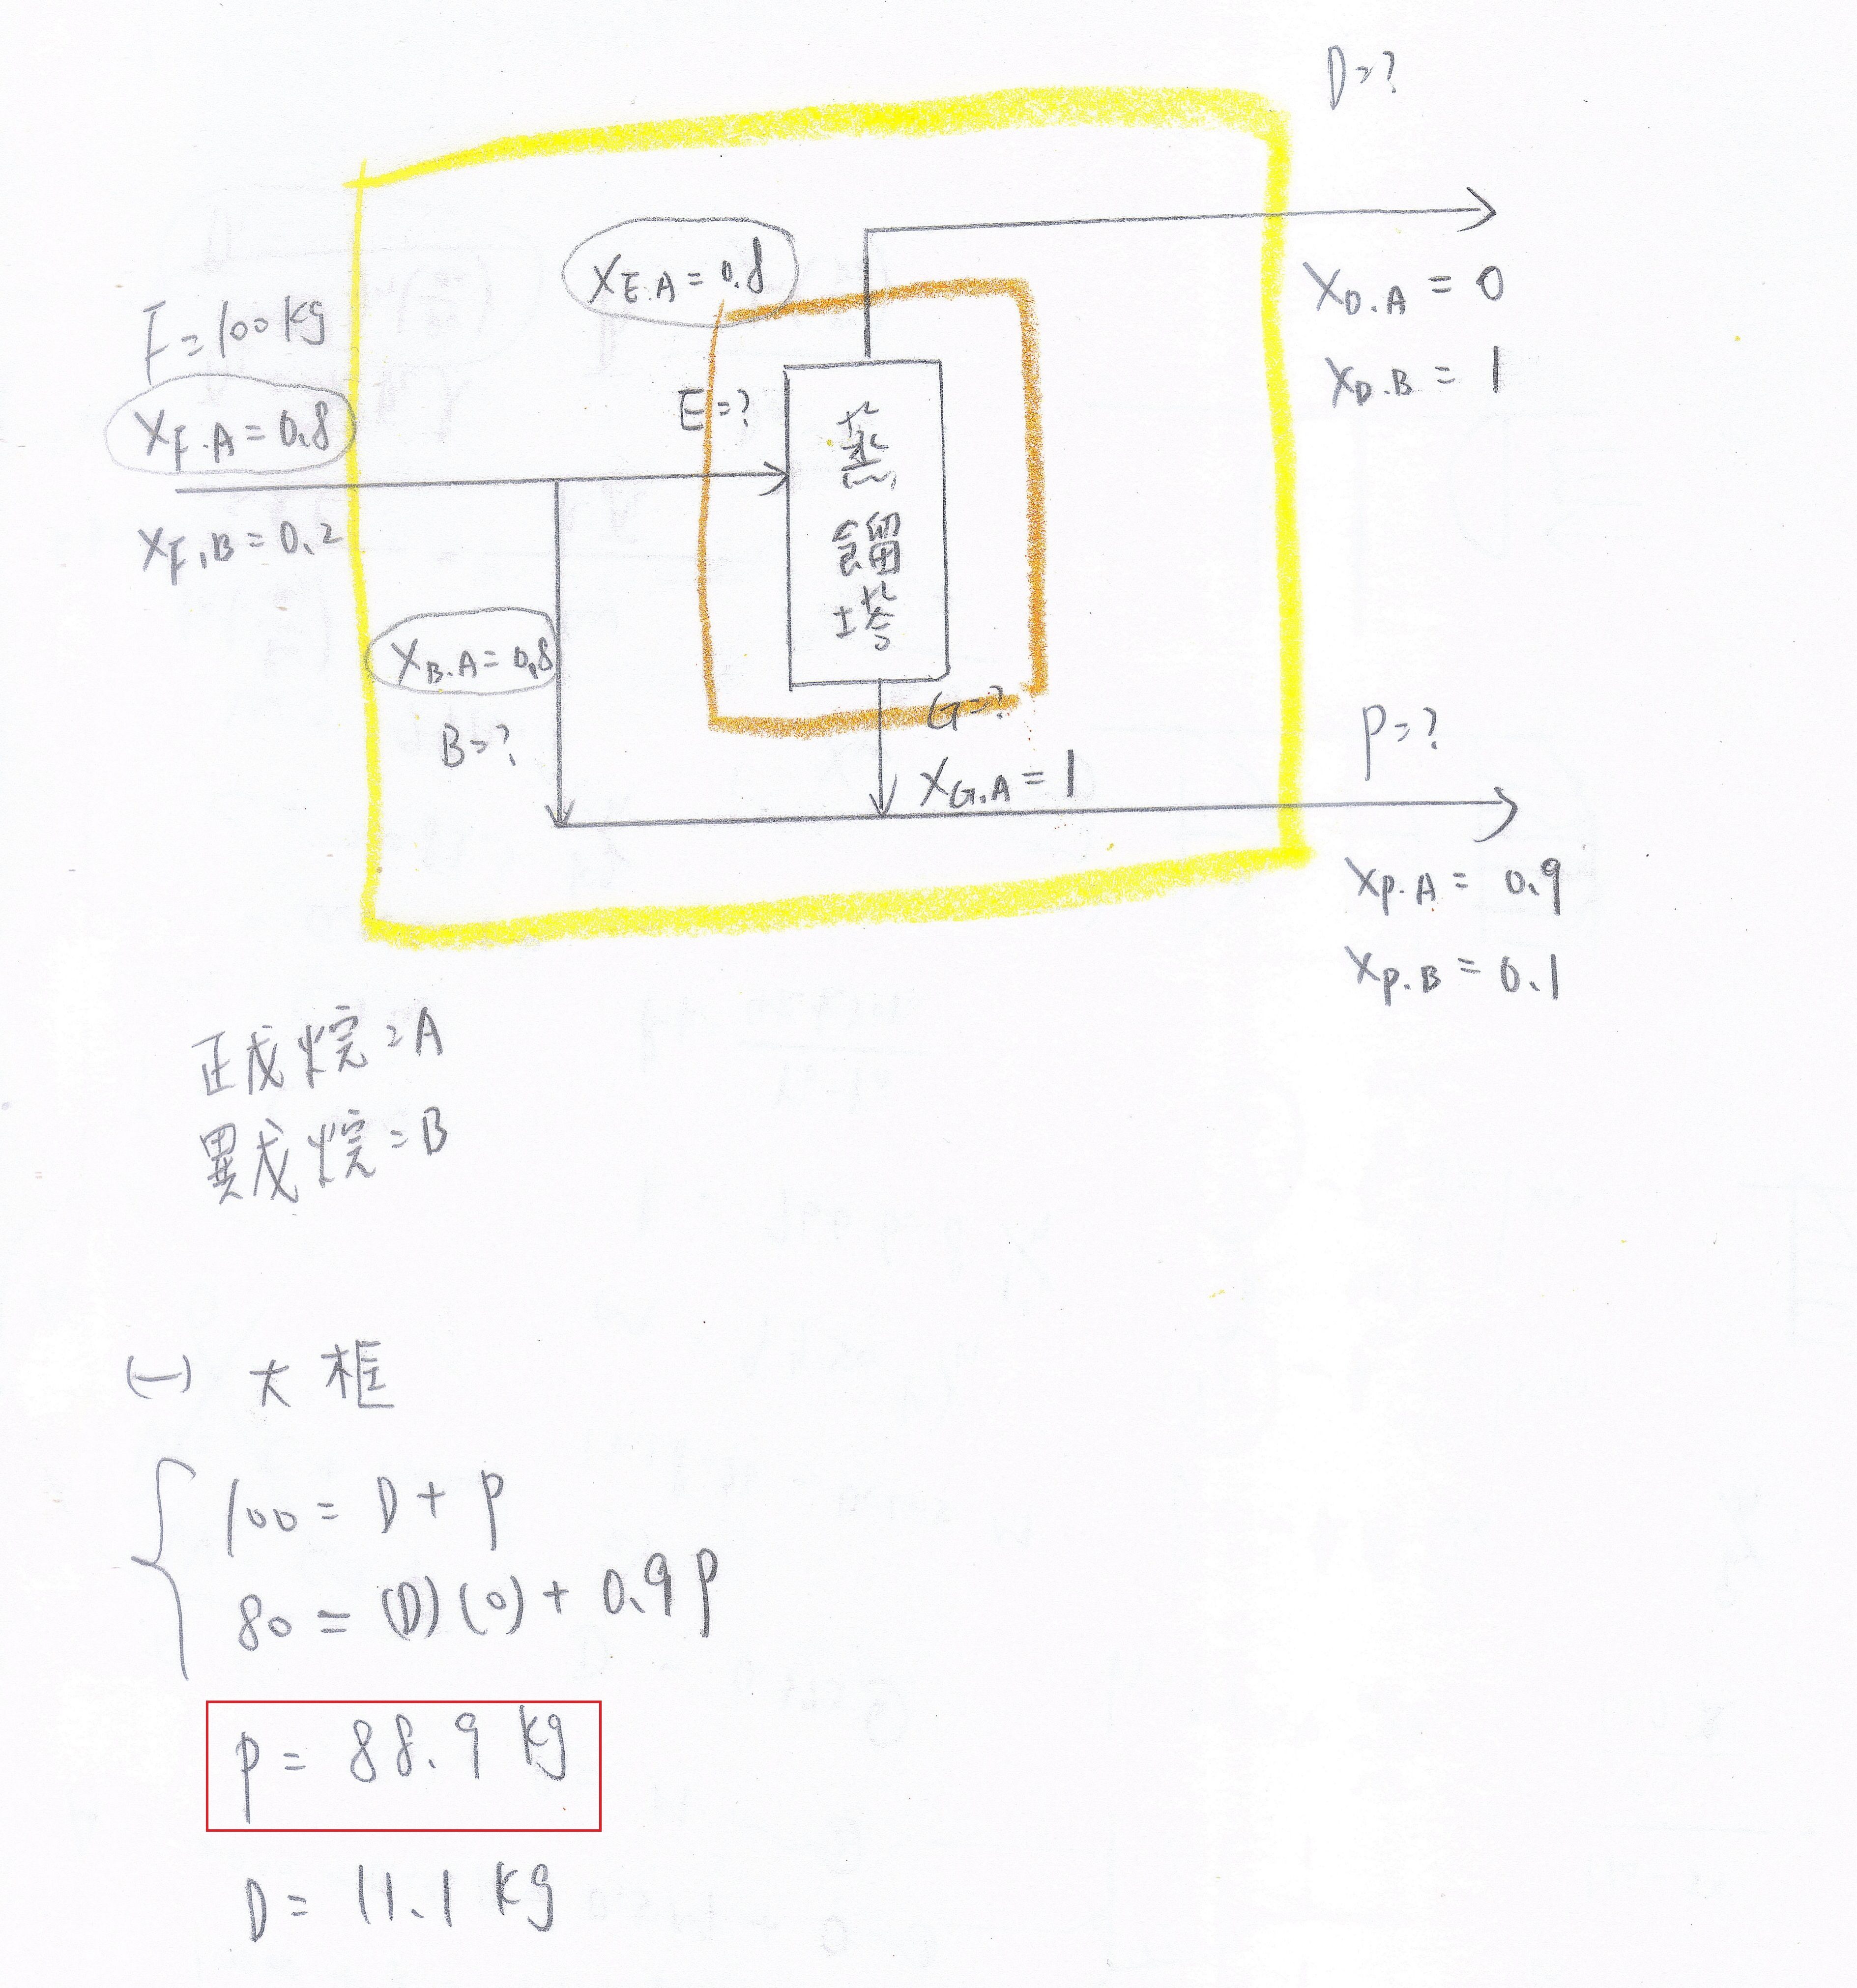 D=?
X_E.A = 0.8
F=100 kg
X_D.A = 0
X_D.B = 1
E=?
X_F.A = 0.8
蒸
餾
塔
X_F,B = 0.2
X_B.A = 0.8
B=?
G=?
X_G.A = 1
P=?
X_P.A = 0.9
X_P.B = 0.1
正戊烷=A
異戊烷=B
(一) 大框
100 = D + P
80 = (D)(0) + 0.9P
P = 88.9 kg
D = 11.1 kg